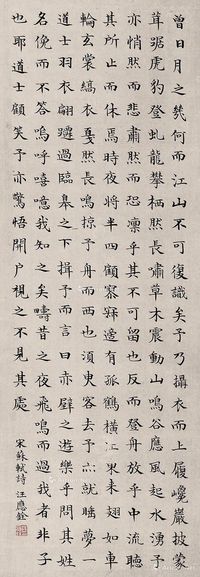 曾日月之幾何而江山不可復識矣予乃攝衣而上履巉巖披蒙
茸踞虎豹登虬龍攀栖然長嘯草木震動山鳴谷應風起水湧予
亦悄然而悲肅然而恐凜乎其不可留也反而登舟放乎中流聽
其所止而休焉時夜將半四顧寂寥適有孤鶴橫江東来翅如車
輪玄裳縞衣戛然長鳴掠予舟而西也須臾客去予亦就睡夢一
道士羽衣翩躚過臨皋之下揖予而言曰赤壁之遊樂乎問其姓
名俛而不答嗚呼噫嘻我知之矣疇昔之夜飛鳴而過我者非子
也耶道士顧笑予亦驚悟開戶視之不見其處
宋蘇軾詩 汪應銓